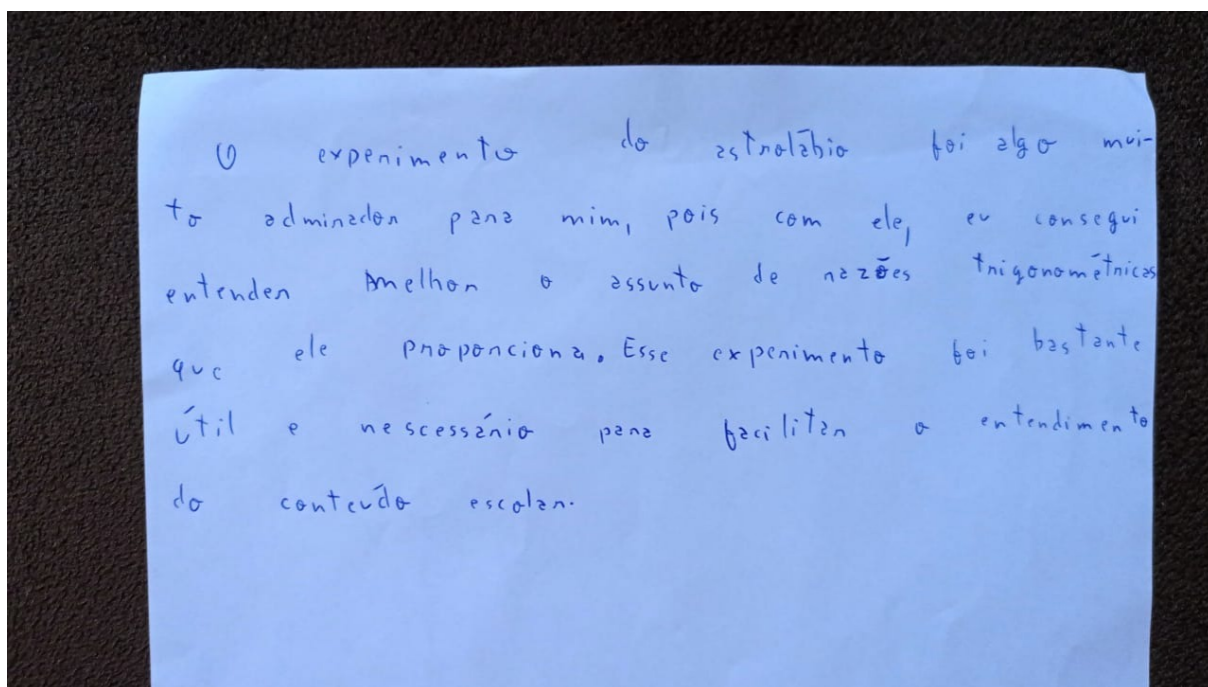 O experimento do astrolábio foi algo mui-
to admirador para mim, pois com ele, eu consegui
entender melhor o assunto de razões trigonométricas
que ele proporciona. Esse experimento foi bastante
útil e nescessário para facilitar o entendimento
do conteúdo escolar.